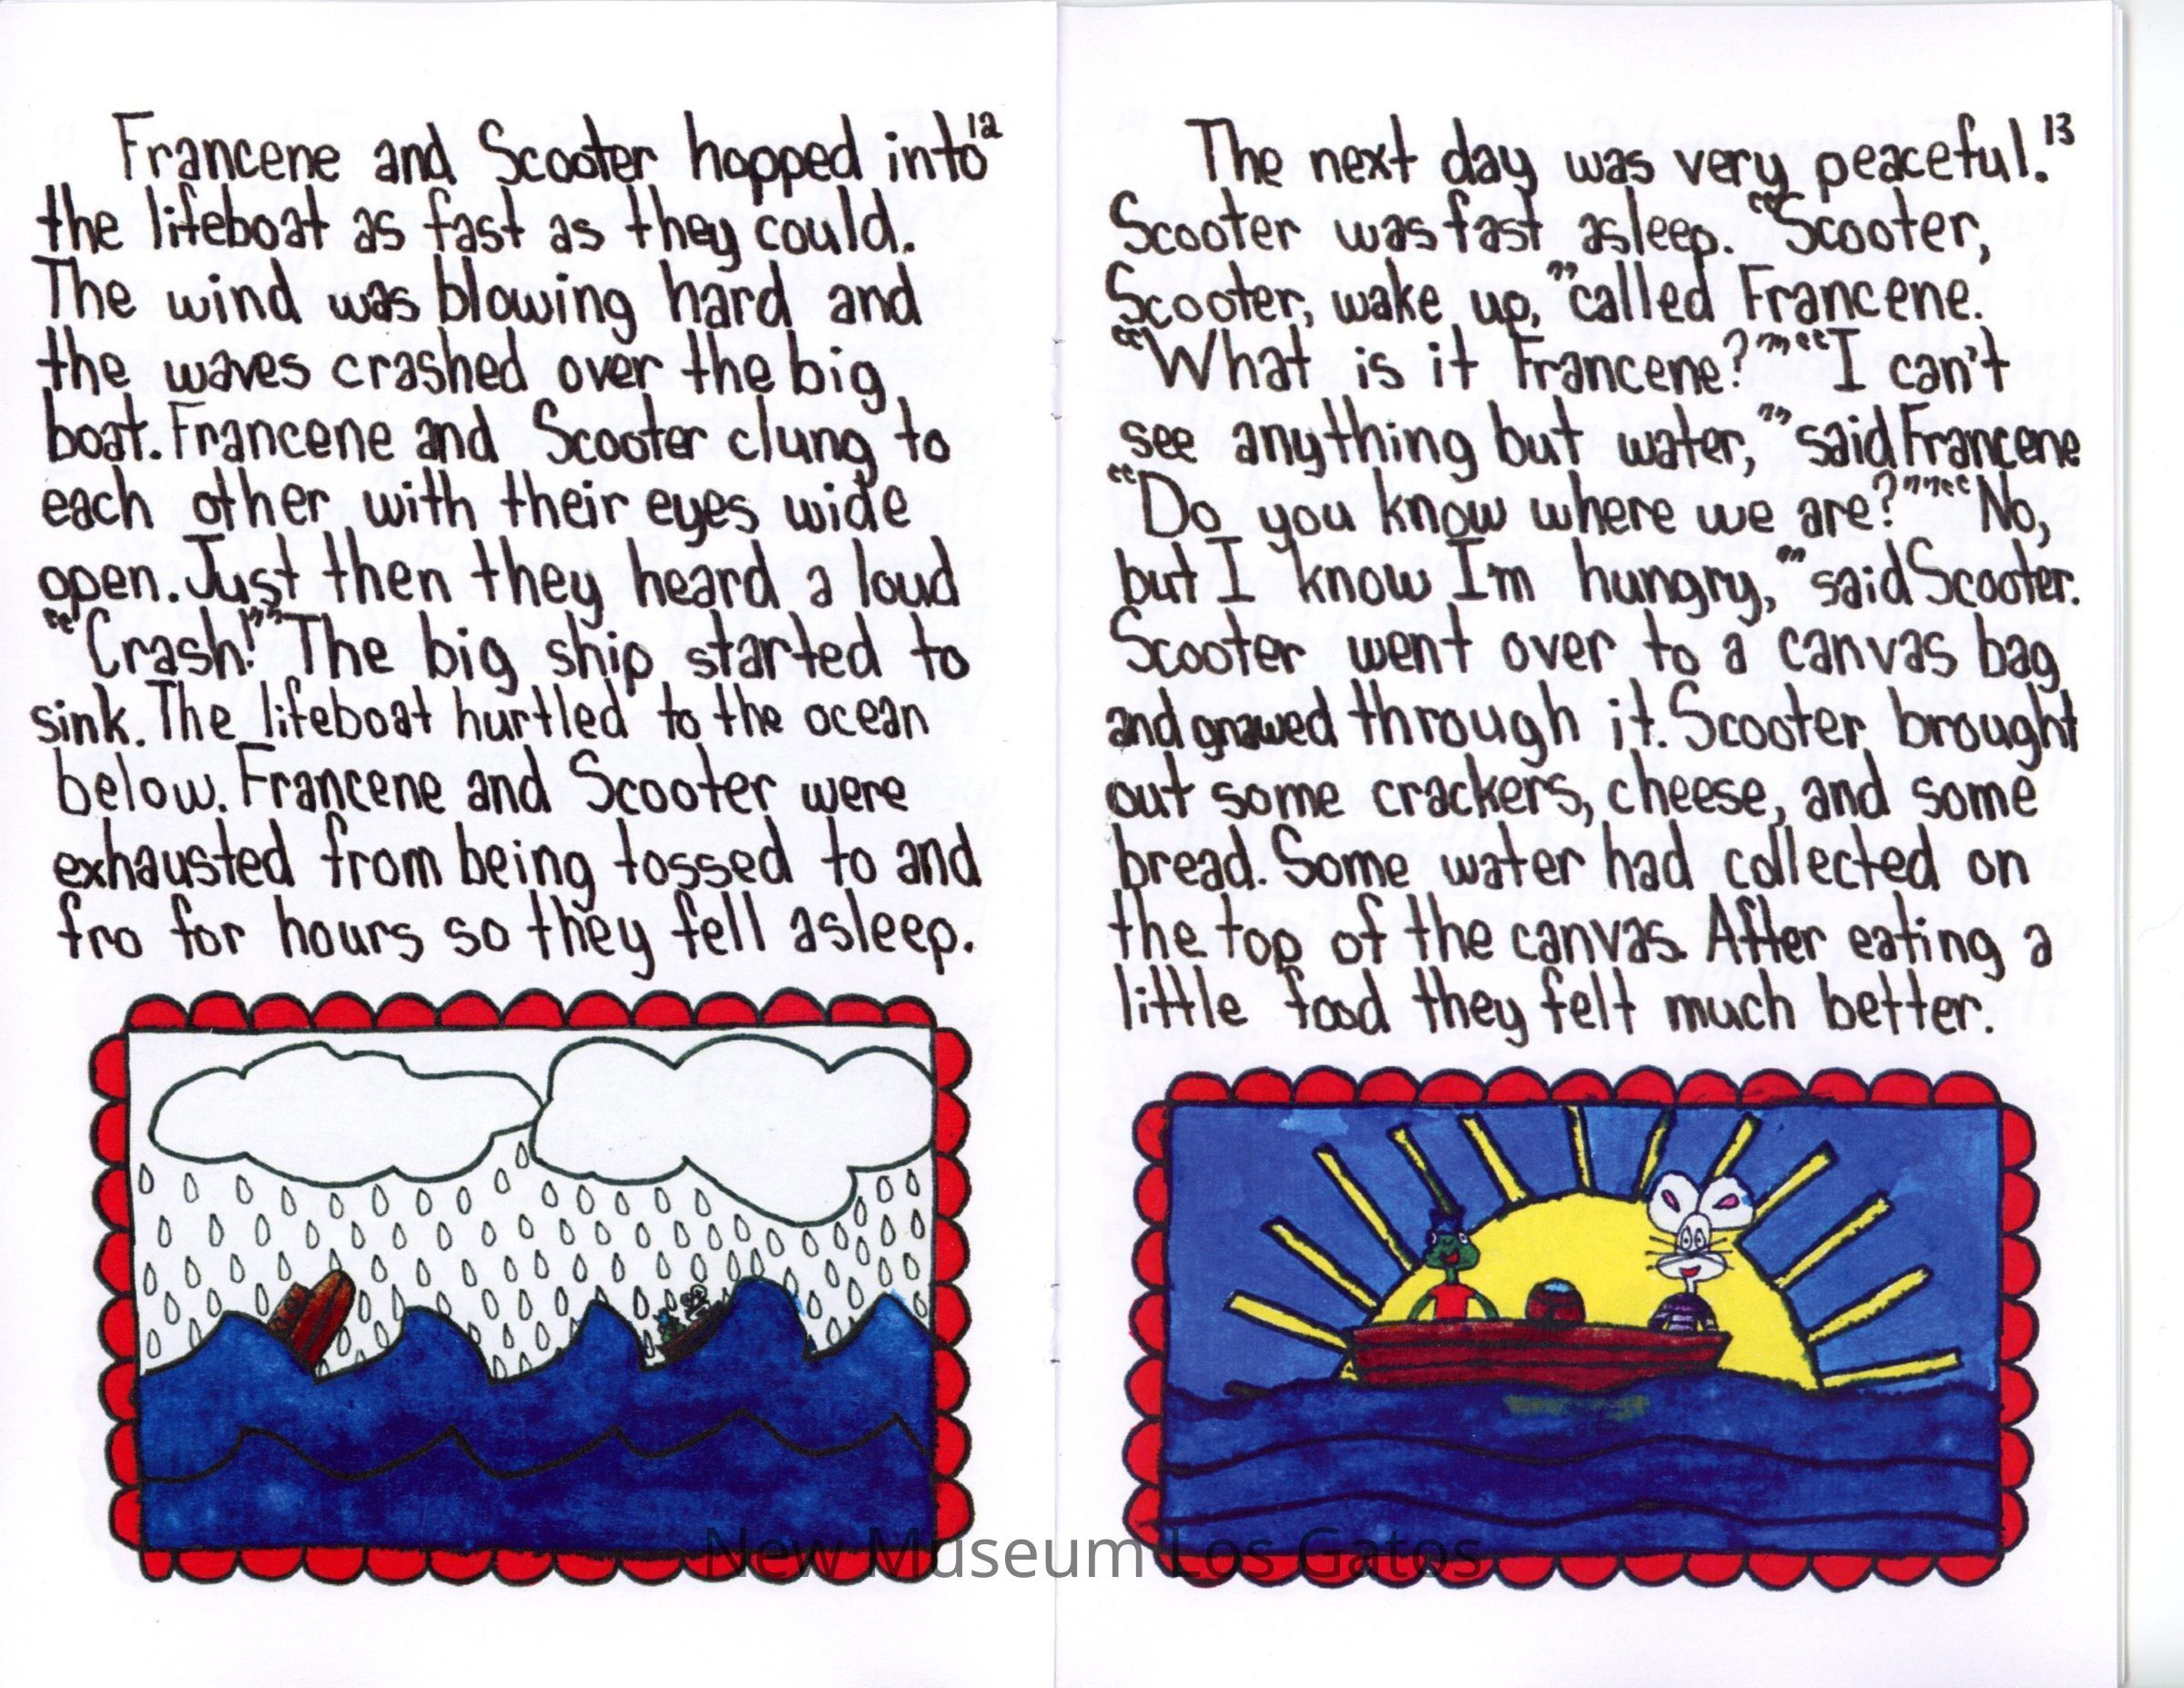 Francene and Scooter hopped into 12
the lifeboat as fast as they could.
The wind was blowing hard and
the waves crashed over the big
boat. Francene and Scooter clung to
each other with their eyes wide
open. Just then they heard a loud
"Crash!" The big ship started to
sink. The lifeboat hurtled to the ocean
below. Francene and Scooter were
exhausted from being tossed to and
fro for hours so they fell asleep.
The next day was very peaceful. 13
Scooter was fast asleep. "Scooter,
Scooter, wake up," called Francene.
"What is it Francene?" "I can't
see anything but water," said Francene
"Do you know where we are?" "No,
but I know Im hungry," said Scooter.
Scooter went over to a canvas bag
and gnawed through it. Scooter brought
out some crackers, cheese, and some
bread. Some water had collected on
the top of the canvas. After eating a
little food they felt much better.
New Museum Los Gatos